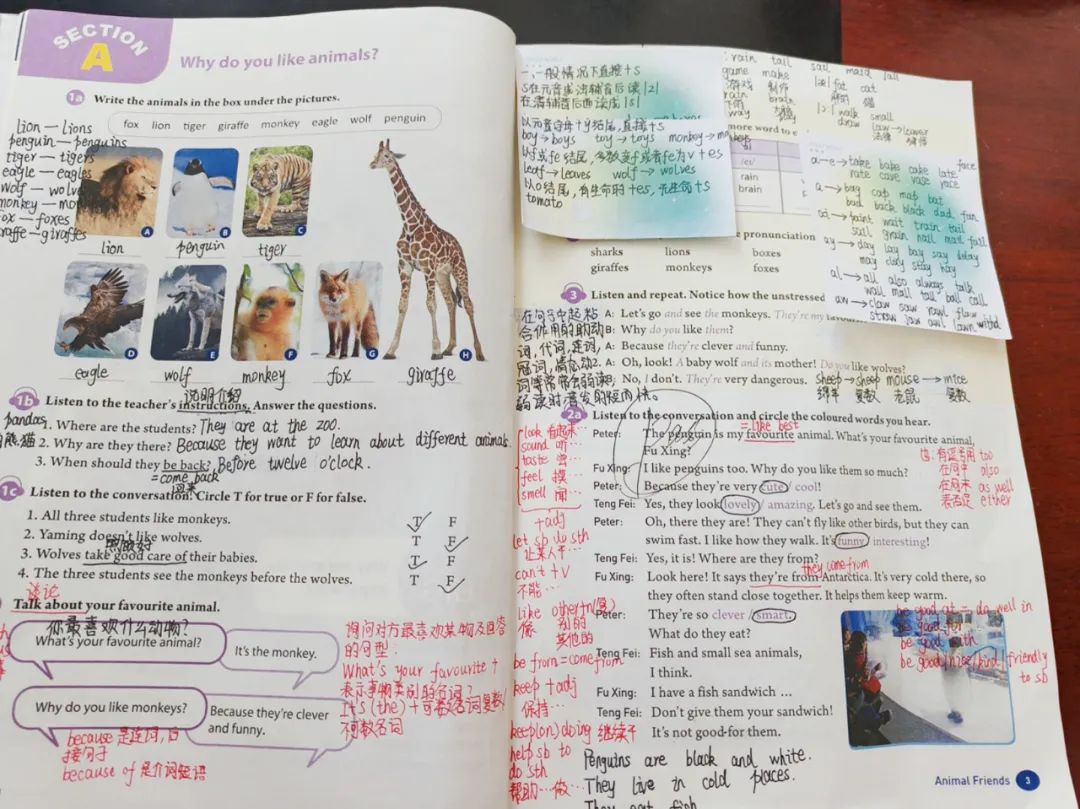 SECTION
A
Why do you like animals?
1a Write the animals in the box under the pictures.
fox lion tiger giraffe monkey eagle wolf penguin
lion — lions
penguin — penguins
tiger — tigers
eagle — eagles
wolf — wolv
monkey — mon
fox — foxes
raffe — giraffes
A
B
C
lion
penguin
tiger
D
E
F
G
H
eagle
wolf
monkey
fox
giraffe
说明介绍
1b Listen to the teacher's instructions. Answer the questions.
pandas
熊猫
1. Where are the students? They are at the zoo.
2. Why are they there? Because they want to learn about different animals.
3. When should they be back? Before twelve o'clock.
= come back
回来
1c Listen to the conversation. Circle T for true or F for false.
1. All three students like monkeys. T F
2. Yaming doesn't like wolves. T F
照顾好
3. Wolves take good care of their babies. T F
4. The three students see the monkeys before the wolves. T F
谈论
Talk about your favourite animal.
你最喜欢什么动物?
What's your favourite animal?
It's the monkey.
Why do you like monkeys?
Because they're clever
and funny.
because 是连词,后
接句子
because of 是介词短语
询问对方最喜欢某物及回答
的句型:
What's your favourite +
表示事物类别的名词?
It's (the) + 可数名词复数/
不可数名词
一、一般情况下直接+s
s在元音或浊辅音后读|z|
在清辅音后面读成|s|
以元音字母+y结尾,直接+s
boy→boys toy→toys monkey→monkeys
以f或fe结尾,多数变f或者fe为v+es
leaf→leaves wolf→wolves
以o结尾,有生命的+es,无生命+s
tomato
rain tail sail maid
game make
游戏 制作
rain brain
fat cat
猫
walk small
draw law→lawyer
法律 律师
more word to e
/eɪ/
rain
brain
a-e→take bake cake late face
rate cave vase race
a→bag cap map bat
bad back black dad fan
ai→paint wait train tail
sail grain nail mail fail
ay→day lay bay say delay
may clay stay hay
al→all also always talk
wall mall tall ball call
aw→claw saw yawn flaw
straw jaw awl lawn withd
e pronunciation
sharks lions boxes
giraffes monkeys foxes
3 Listen and repeat. Notice how the unstressed
1. A: Let's go and see the monkeys. They're my favour
B: Why do you like them?
A: Because they're clever and funny.
2. A: Oh, look! A baby wolf and its mother! Do you like wolves?
B: No, I don't. They're very dangerous.
sheep→sheep mouse→mice
绵羊 复数 老鼠 复数
在句子中起粘
合作用的助动
词,代词,连词,
冠词,情态动
词等常常会弱读,
弱读时音发的短而快。
2a Listen to the conversation and circle the coloured words you hear.
= like best
Peter: The penguin is my favourite animal. What's your favourite animal,
Fu Xing?
Fu Xing: I like penguins too. Why do you like them so much?
Peter: Because they're very cute / cool!
Teng Fei: Yes, they look lovely / amazing. Let's go and see them.
Peter: Oh, there they are! They can't fly like other birds, but they can
swim fast. I like how they walk. It's funny / interesting!
Teng Fei: Yes, it is! Where are they from?
they come from
Fu Xing: Look here! It says they're from Antarctica. It's very cold there, so
they often stand close together. It helps them keep warm.
Peter: They're so clever / smart.
What do they eat?
Teng Fei: Fish and small sea animals,
I think.
Fu Xing: I have a fish sandwich …
Teng Fei: Don't give them your sandwich!
It's not good for them.
too
在句中 also
在句末 as well
表否定 either
look 看起来…
sound 听…
taste 尝…
feel 摸…
smell 闻…
+adj
let sb do sth
让某人干…
can't + V
不能…
like other+n(复)
像 别的
其他的
be from = come from
keep +adj
保持…
keep(on) doing 继续干
help sb to
do sth
帮助…做…
be good at = do well in
be good for
be good with
be good/nice/kind/friendly
to sb
Penguins are black and white.
They live in cold places.
They eat fish
Animal Friends 3